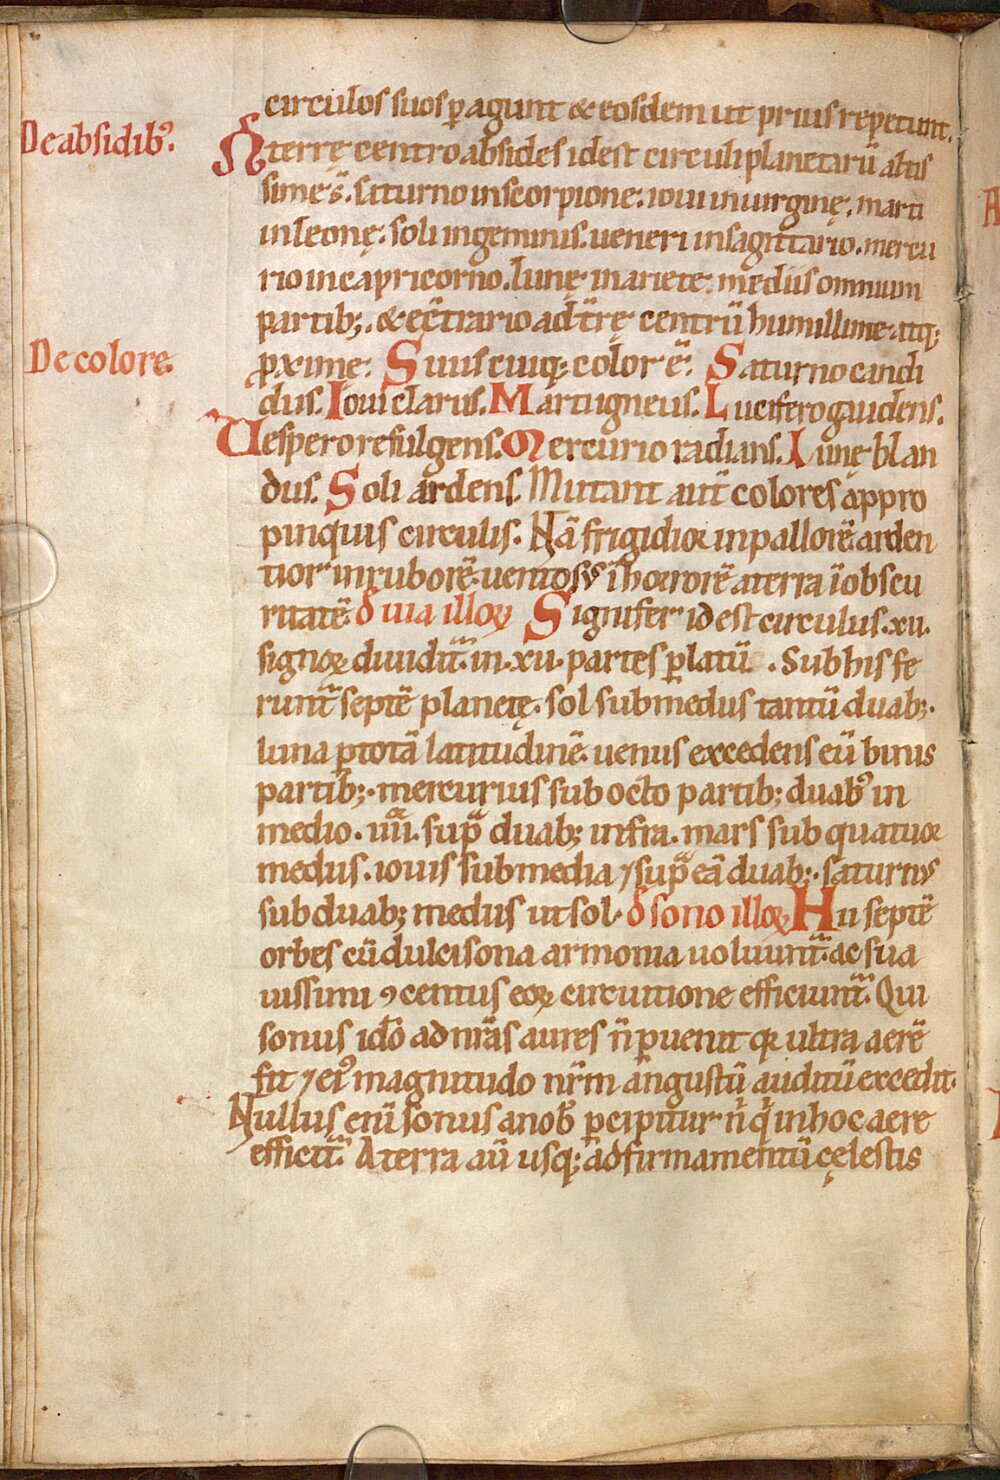 circulos suos ꝑagunt & eosdem ut prius repetunt.
De absidibꝰ.
A terrę centro absides id est circuli planetarū altis
simę s̄. saturno in scorpione: ioui in uirginę. marti
in leonę: soli in geminis. ueneri in sagittario. mercu
rio in capricorno. lunę in ariete: mediis omnium
partib;. & ecͣtrario ad tr̄ę centrū humillime atq;
De colore.
ꝓximę: Suus cuiq; color ē. Saturno candi
dus. Ioui clarus. Marti igneus. Lucifero gaudens.
Vespero refulgens. Mercurio radians. Lunę blan
dus. Soli ardens. Mutant aut̄ colores appro
pinquis circulis. Nā frigidior in pallorē. arden
tior in ruborē. uentosus ī horrorē a terra ī obscu
ritatē. đ uia illoꝝ Signifer id est circulus .xii.
signoꝝ diuidit̄. in .xii. partes ꝑ latū. Sub his fe
runt̄ septē planetę. sol sub mediis tantū duab;.
luna ꝑ totā latitudinē. uenus excedens eū binis
partib;. mercurius sub octo partib; duabꝰ in
medio. iiii. supͣ duab; infra. mars sub quatuor
mediis. iouis sub media ⁊ supͣ eā duab;. saturnus
sub duab; mediis ut sol. đ sono illoꝝ Hii septē
orbes cū dulcisona armonia uoluunt̄. ac sua
uissimi ꝯcentus eoꝝ circuitione efficiunt̄. Qui
sonus ido ad nr̄as aures n̄ ꝑuenit qr ultra aerē
fit ⁊ eiꝰ magnitudo nr̄m angustū auditū excedit.
Nullus enī sonus a nob̄ ꝑcipitur n̄ q̇ in hoc aere
efficit̄. A terra aū usq; ad firmamentū cęlestis